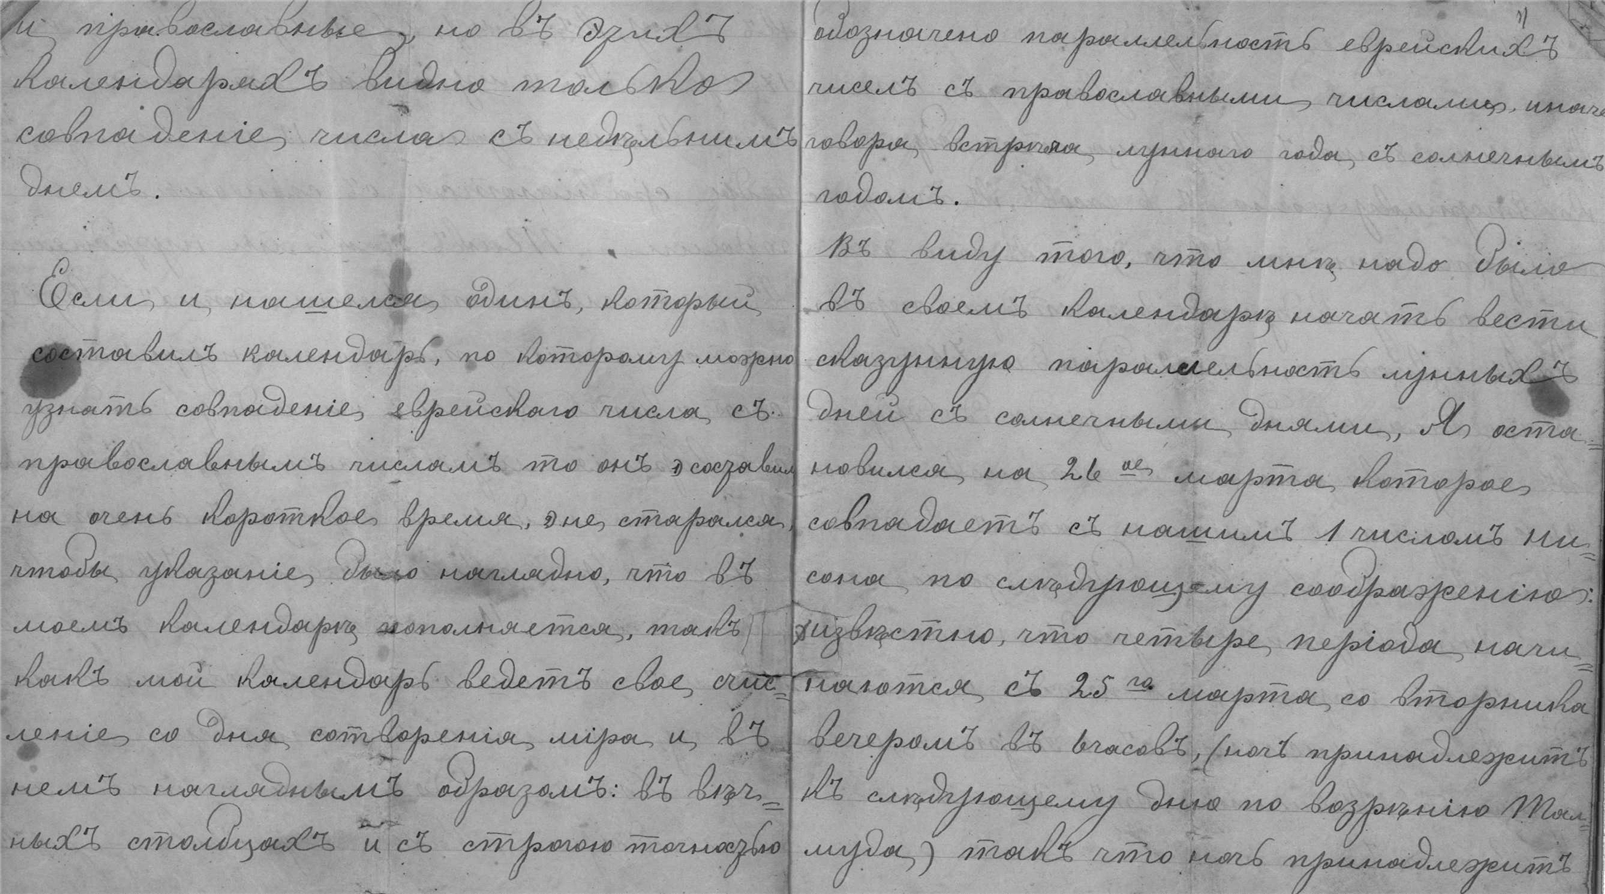 и православные, но въ этихъ
календаряхъ видно только
совпаденіе числа съ недѣльнимъ
днемъ.
Если и нашелся одинъ, который
составилъ календарь, по которому можно
узнать совпаденіе еврейскаго числа съ
православнымъ числамъ то онъ составилъ
на очень короткое время, не старался,
чтобы указаніе было наглядно, что въ
моемъ календарѣ пополняется, такъ
какъ мой календарь ведетъ свое счис=
леніе со дня сотворенія міра и въ
немъ нагляднымъ образомъ: въ вѣч=
ныхъ столбцахъ и съ строгою точностью
обозначено параллельность еврейскихъ
чиселъ съ православными числами, иначе
говоря встрѣча луннаго года, съ солнечнымъ
годомъ.
Въ виду того, что мнѣ надо было
въ своемъ календарѣ начать вести
сказунную паралельность лунныхъ
дней съ солнечными днями, Я оста=
новился на 26 ое марта которое
совпадаетъ съ нашимъ 1 числомъ ни=
сона по слѣдующему соображенію:
извѣстно, что четыре періода начи=
наются съ 25 го марта со вторника
вечеромъ въ 6 часовъ, (ночъ принадлежитъ
къ слѣдующему дню по возрѣнію Тал=
муда) такъ что ночь принадлежитъ